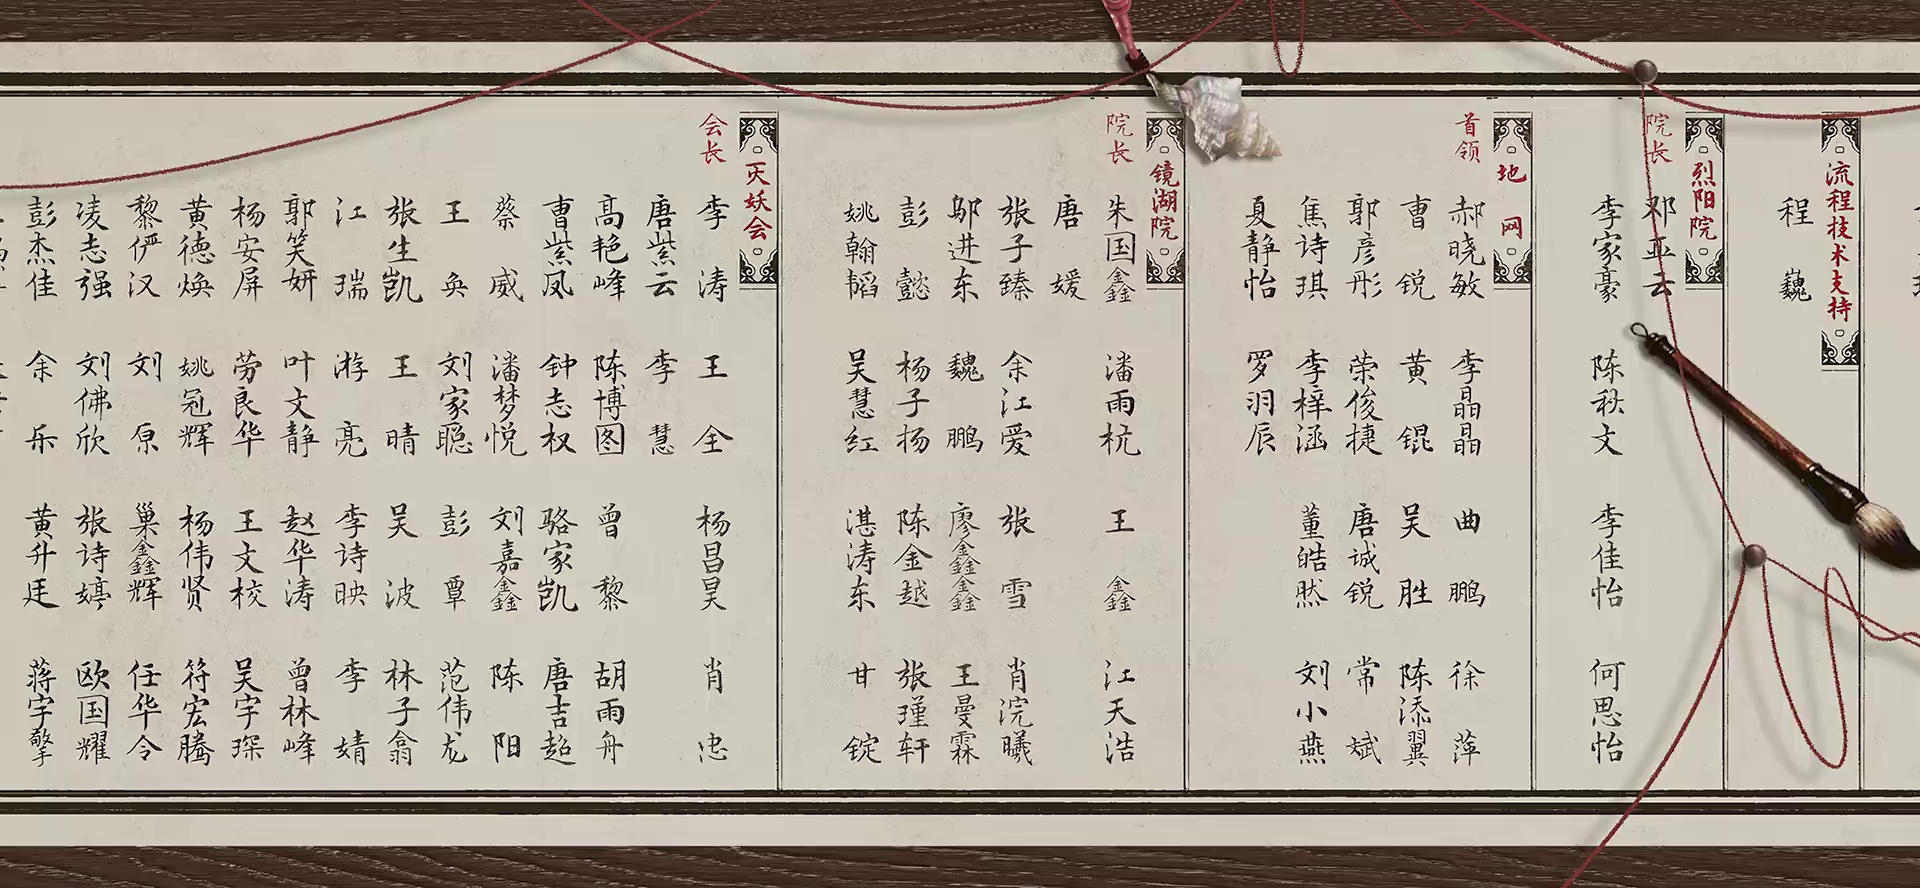 流程技术支持
程巍
烈阳院
院长
邓亚云
李家豪
陈秋文
李佳怡
何思怡
地网
首领
郝晓敏
李晶晶
曲鹏
徐萍
曹锐
黄锟
吴胜
陈添翼
郭彦彤
荣俊捷
唐诚锐
常斌
焦诗琪
李梓涵
董皓然
刘小燕
夏静怡
罗羽辰
镜湖院
院长
朱国鑫
潘雨杭
王鑫
江天浩
唐媛
张子臻
余江爱
张雪
肖浣曦
邬进东
魏鹏
廖鑫鑫
王曼霖
彭懿
杨子扬
陈金越
张瑾轩
姚翰韬
吴慧红
湛涛东
甘锭
灭妖会
会长
李涛
王全
杨昌昊
肖忠
唐紫云
李慧
高艳峰
陈博图
曾黎
胡雨舟
曹紫凤
钟志权
骆家凯
唐吉超
蔡威
潘梦悦
刘嘉鑫
陈阳
王奂
刘家聪
彭覃
范伟龙
张生凯
王晴
吴波
林子翕
江瑞
游亮
李诗映
李婧
郭笑妍
叶文静
赵华涛
曾林峰
杨安屏
劳良华
王文校
吴宇琛
黄德焕
姚冠辉
杨伟贤
符宏腾
黎俨汉
刘原
巢鑫辉
任华令
凌志强
刘佛欣
张诗婷
欧国耀
彭杰佳
余乐
黄升廷
蒋宇擎